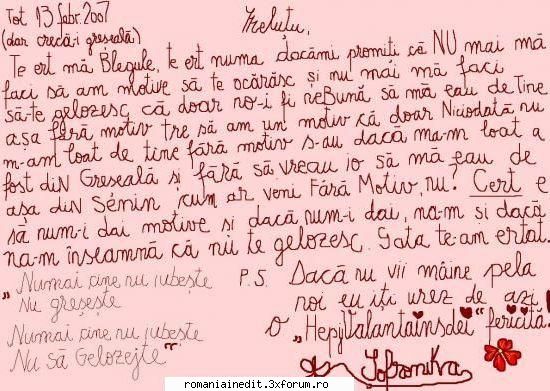 Tot 13 fabr. 2007
(dar crecă-i greșeală)
Irelutu,
Te ert mă Blegule, te ert numa dacămi promiți că NU mai mă
faci să am motive să te ocărăsc și nu mai mă faci
să-te gelozesc, că doar no-i fi neBună să mă eau de Tine
așa fără motiv tre să am un motiv că doar Niciodată nu
m-am loat de tine fără motiv s-au dacă ma-m loat a
fost diN Greseală și fără să vreau io să mă eau de
așa diN Sénin, cum ar veni Fără Motiv, nu? Cert e
să num-i dai motive și dacă num-i dai, na-m si dacă
na-m înseamnă că nu te gelozesc. Gata te-am ertat.
„Numai cine nu iubește
Nu greșește
Numai cine nu iubește
Nu să Gelozejte"
P.S. Dacă nu vii mâine pela
noi eu iți urez de azi
o „HepyValantainsdei" fericită!
Sofronika
romaniainedit.3xforum.ro